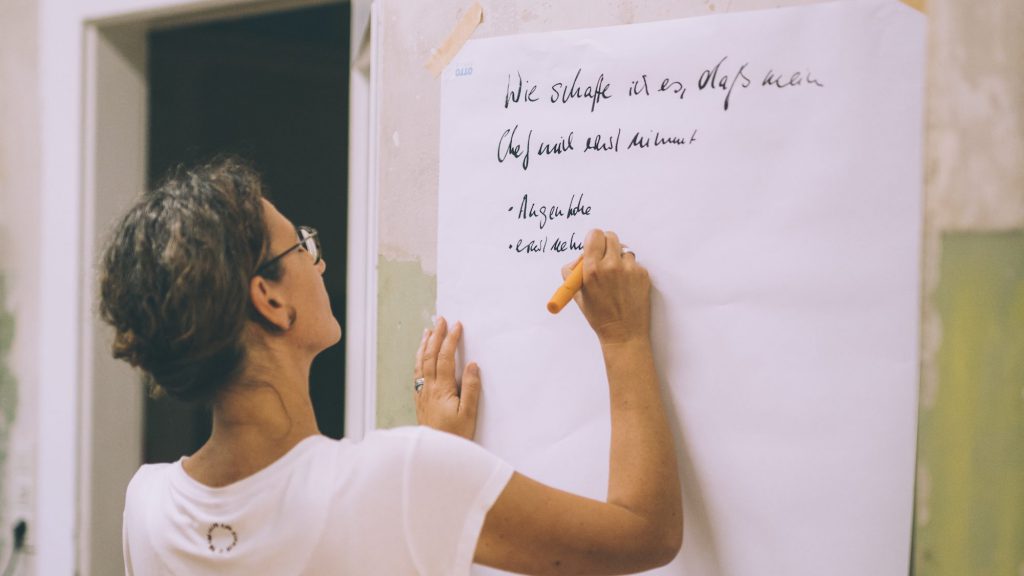 Wie schaffe ich es, daß mein
Chef mich ernst nimmt
• Augenhöhe
• ernst nehm